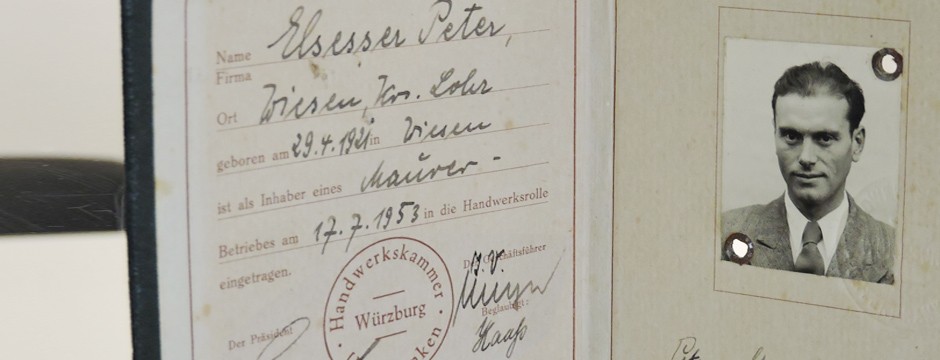 Name Elsesser Peter,
Firma
Ort Wiesen, Krs. Lohr
geboren am 29.4.1921 in Wiesen
ist als Inhaber eines Maurer -
Betriebes am 17.7.1953 in die Handwerksrolle
eingetragen.
Handwerkskammer
Würzburg
Der Geschäftsführer
I.V.
Beglaubigt:
Haaß
Der Präsident